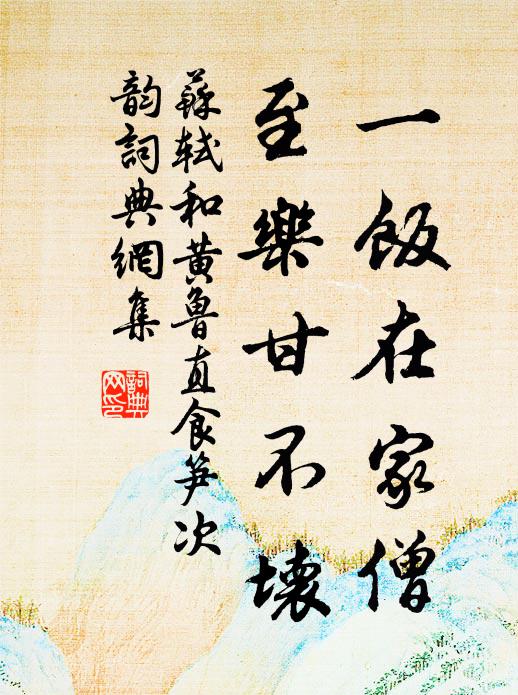 一飯在家僧
至樂甘不壞
蘇軾和黃魯直食笋次
韵詞典網集
詞典
网印